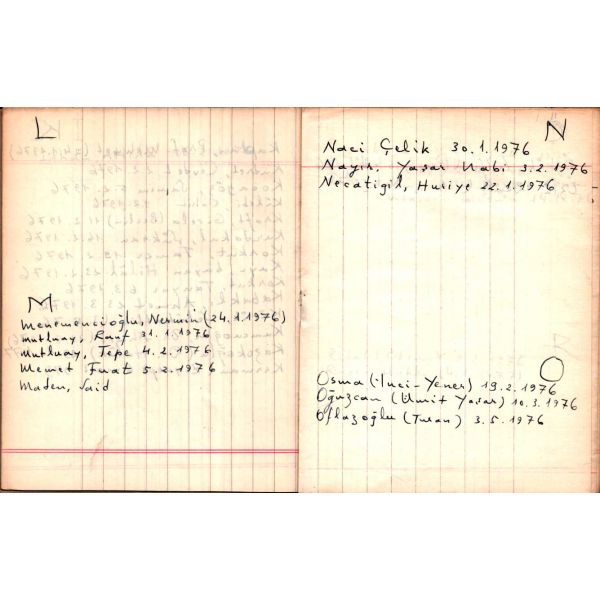 L
M
Menemencioğlu, Nermin (24.1.1976)
Mutluay, Rauf 31.1.1976
Mutluay, Tepe 4.2.1976
Memet Fuat 5.2.1976
Maden, Said
N
Naci Çelik 30.1.1976
Nayır, Yaşar Nabi 3.2.1976
Necatigil, Huriye 22.1.1976
O
Osma (Yener) 19.2.1976
Oğuzcan (Ümit Yaşar) 10.3.1976
Oflazoğlu (Turan) 3.5.1976